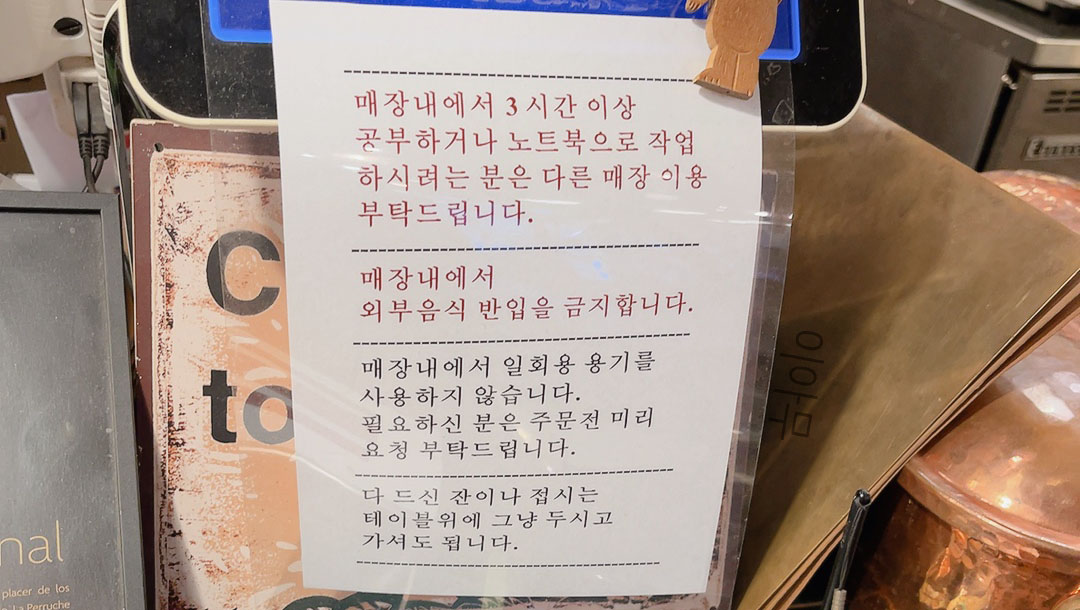 매장내에서 3 시간 이상
공부하거나 노트북으로 작업
하시려는 분은 다른 매장 이용
부탁드립니다.
매장내에서
외부음식 반입을 금지합니다.
매장내에서 일회용 용기를
사용하지 않습니다.
필요하신 분은 주문전 미리
요청 부탁드립니다.
다 드신 잔이나 접시는
테이블위에 그냥 두시고
가셔도 됩니다.
C
to
nal
placer de los
La Perruche